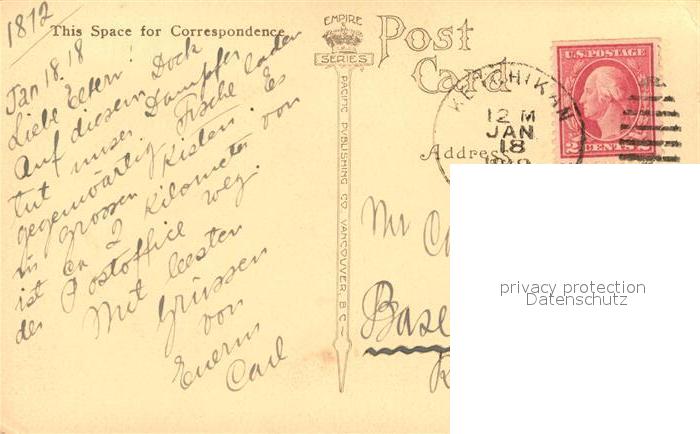 1812
This Space for Correspondence
Jan 18. 18
Liebe Eltern!
Auf diesem Dock
tut unser Dampfer
gegenwärtig Fische laden
in grossen Kisten. Es
ist ca 2 Kilometer von
der Postoffice weg.
Mit besten
Grüssen
von
Euerm
Carl
EMPIRE
SERIES
PACIFIC PUBLISHING CO. VANCOUVER, B.C.
Post
Card
Address
KETCHIKAN
12 M
JAN
18
U.S. POSTAGE
2 CENTS 2
Mr
Base
privacy protection
Datenschutz